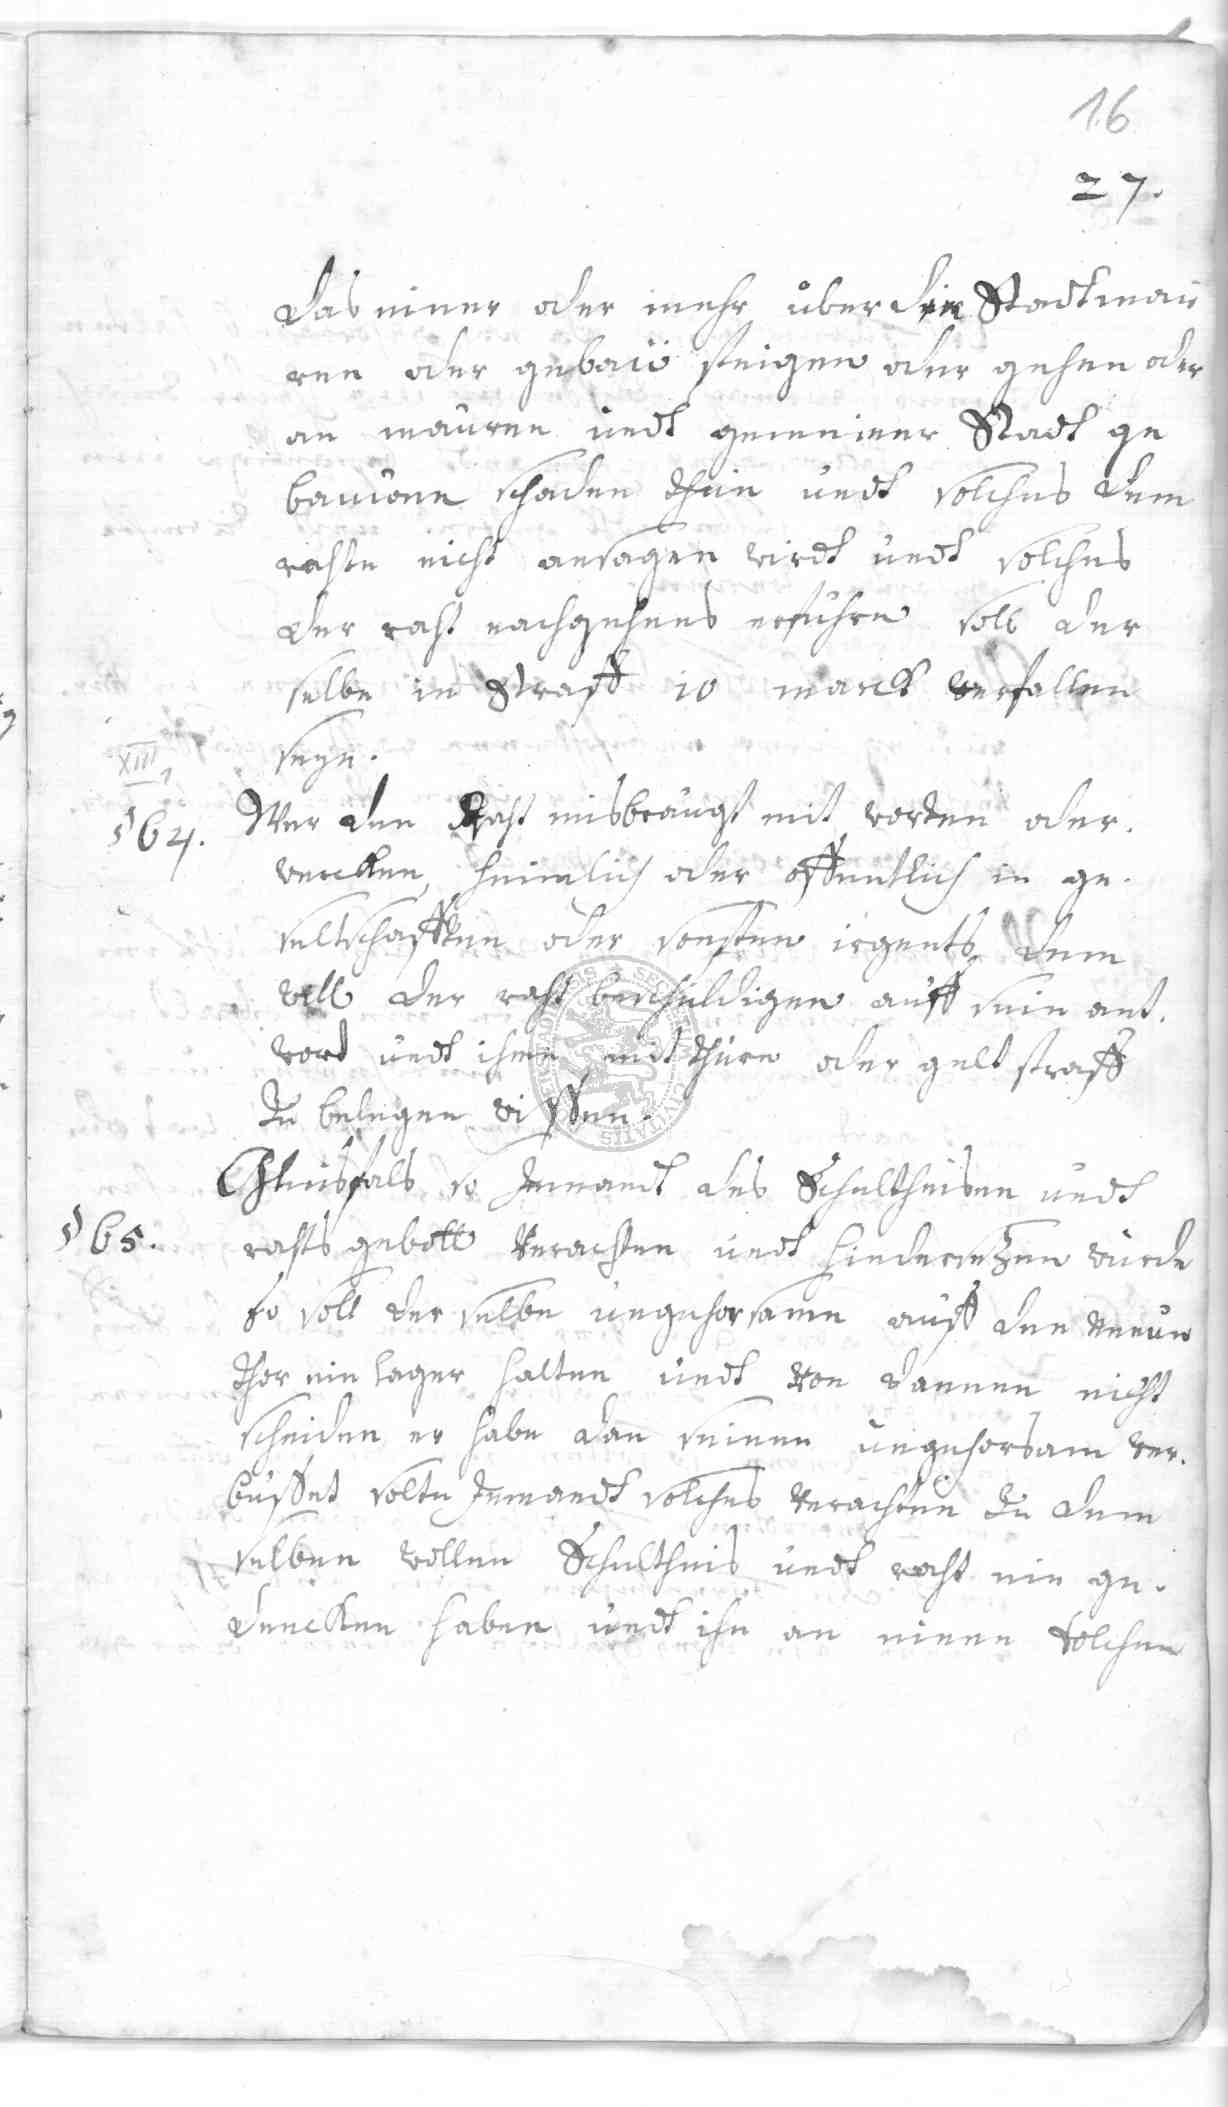 16
27.
das einer oder mehr über die Stadtmau
ren oder gebaü steigen oder gehen oder
an mauren undt gemeiner Stadt ge
bauwen schaden thun undt solches dem
rahte nicht ansagen wirdt undt solches
der raht nachgehens erfuhre soll der
selbe in Straff 10 marck verfallen
seyn.
XIII 1
§ 64. Wer den Raht misbraugt mit worten oder
wercken, heimlich oder offentlich in ge-
seltschafften oder sonsten irgents dem
will der raht beschuldigen auff sein ant-
wort undt ihme mit thurn oder gelt straff
zu belegen wissen.
§ 65. Gleichsfals so Jemandt des Schultheisen undt
rahts gebott verachten undt hindersetzen wurde
so soll der selbe ungehorsame auff den neun
thor ein lager halten undt von dannen nicht
scheiden er habe dan seinen ungehorsam ver-
büsset solte Jemandt solches verachten zu dem
selben wollen Schultheis undt raht ein ge-
dencken haben undt ihn an einen solchen